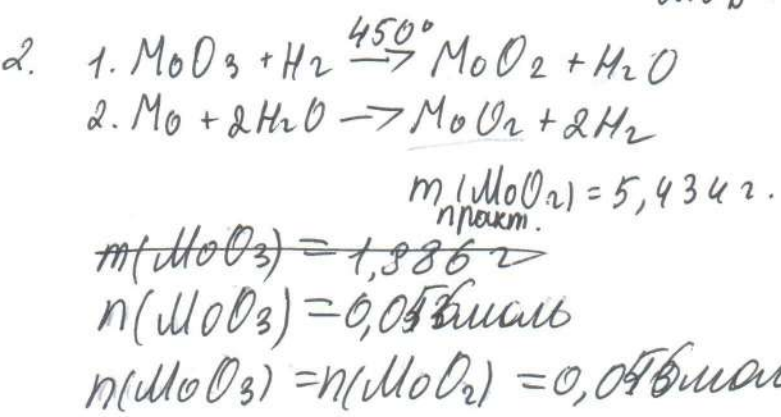 2. 1. MoO3 + H2 450° → MoO2 + H2O
2. Mo + 2H2O → MoO2 + 2H2
m практ. (MoO2) = 5,434 г.
m(MoO3) = 1,986 г
n(MoO3) =
n(MoO3) = n(MoO2) =